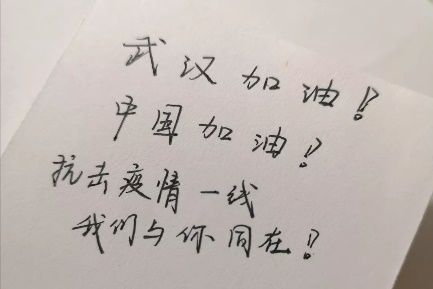 武汉加油！
中国加油！
抗击疫情一线
我们与你同在！